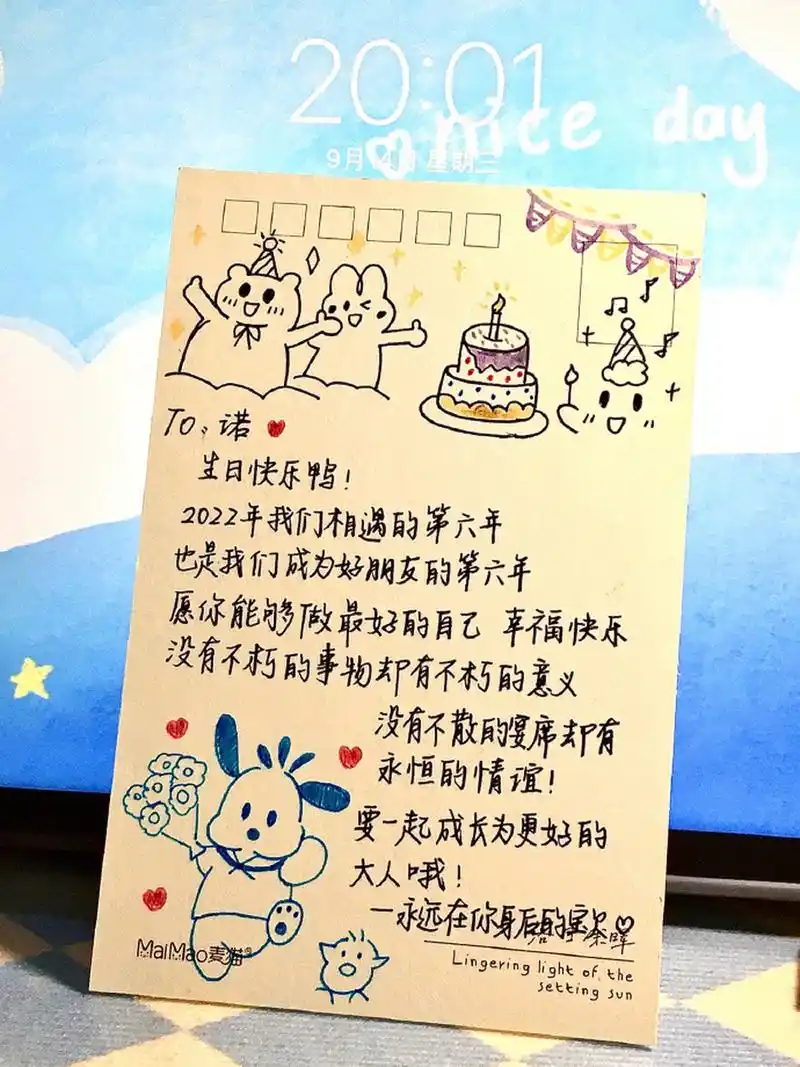 20:01
nice day
9月14日 星期三
TO：诺
生日快乐鸭！
2022年我们相遇的第六年
也是我们成为好朋友的第六年
愿你能够做最好的自己 幸福快乐
没有不朽的事物却有不朽的意义
没有不散的宴席却有
永恒的情谊！
要一起成长为更好的
大人哦！
—永远在你身后的宝
MaiMao麦猫
Lingering light of the
setting sun